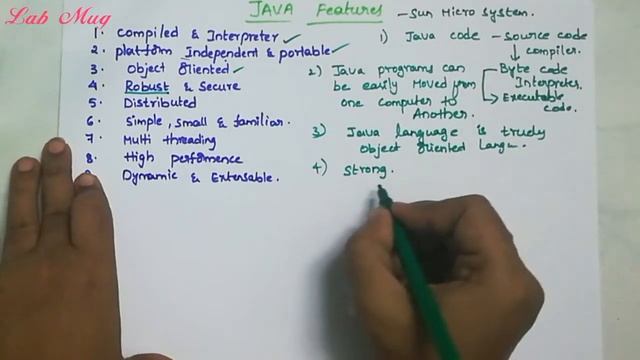 Lab Mug
JAVA Features - Sun Micro System.
1. Compiled & Interpreter ✓
2. platform Independent & portable ✓
3. Object Oriented ✓
4. Robust & Secure
5. Distributed
6. Simple, Small & familiar.
7. Multi threading
8. High perfomence
Dynamic & Extensable.
1) Java code - Source code
↓ compiler.
Byte code
Interpreter.
Executable code.
2) Java programs can
be easily Moved from
one computer to
Another.
3) Java language is truely
Object Oriented Langu-
4) Strong.